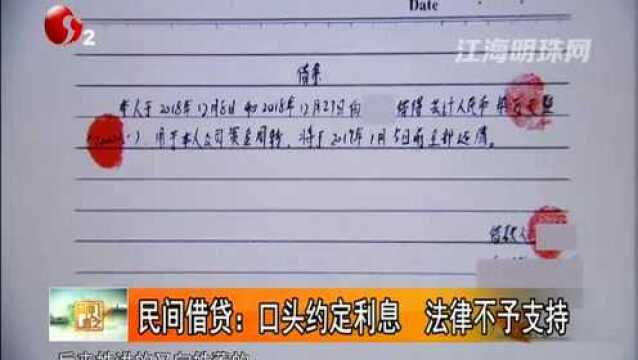 Date
2
江海明珠网
借条
本人于2018年12月8日和2018年12月27日向 借得 共计人民币
用于本人公司资金周转，将于2019年1月5日前全部还清。
借款人
民间借贷：口头约定利息 法律不予支持